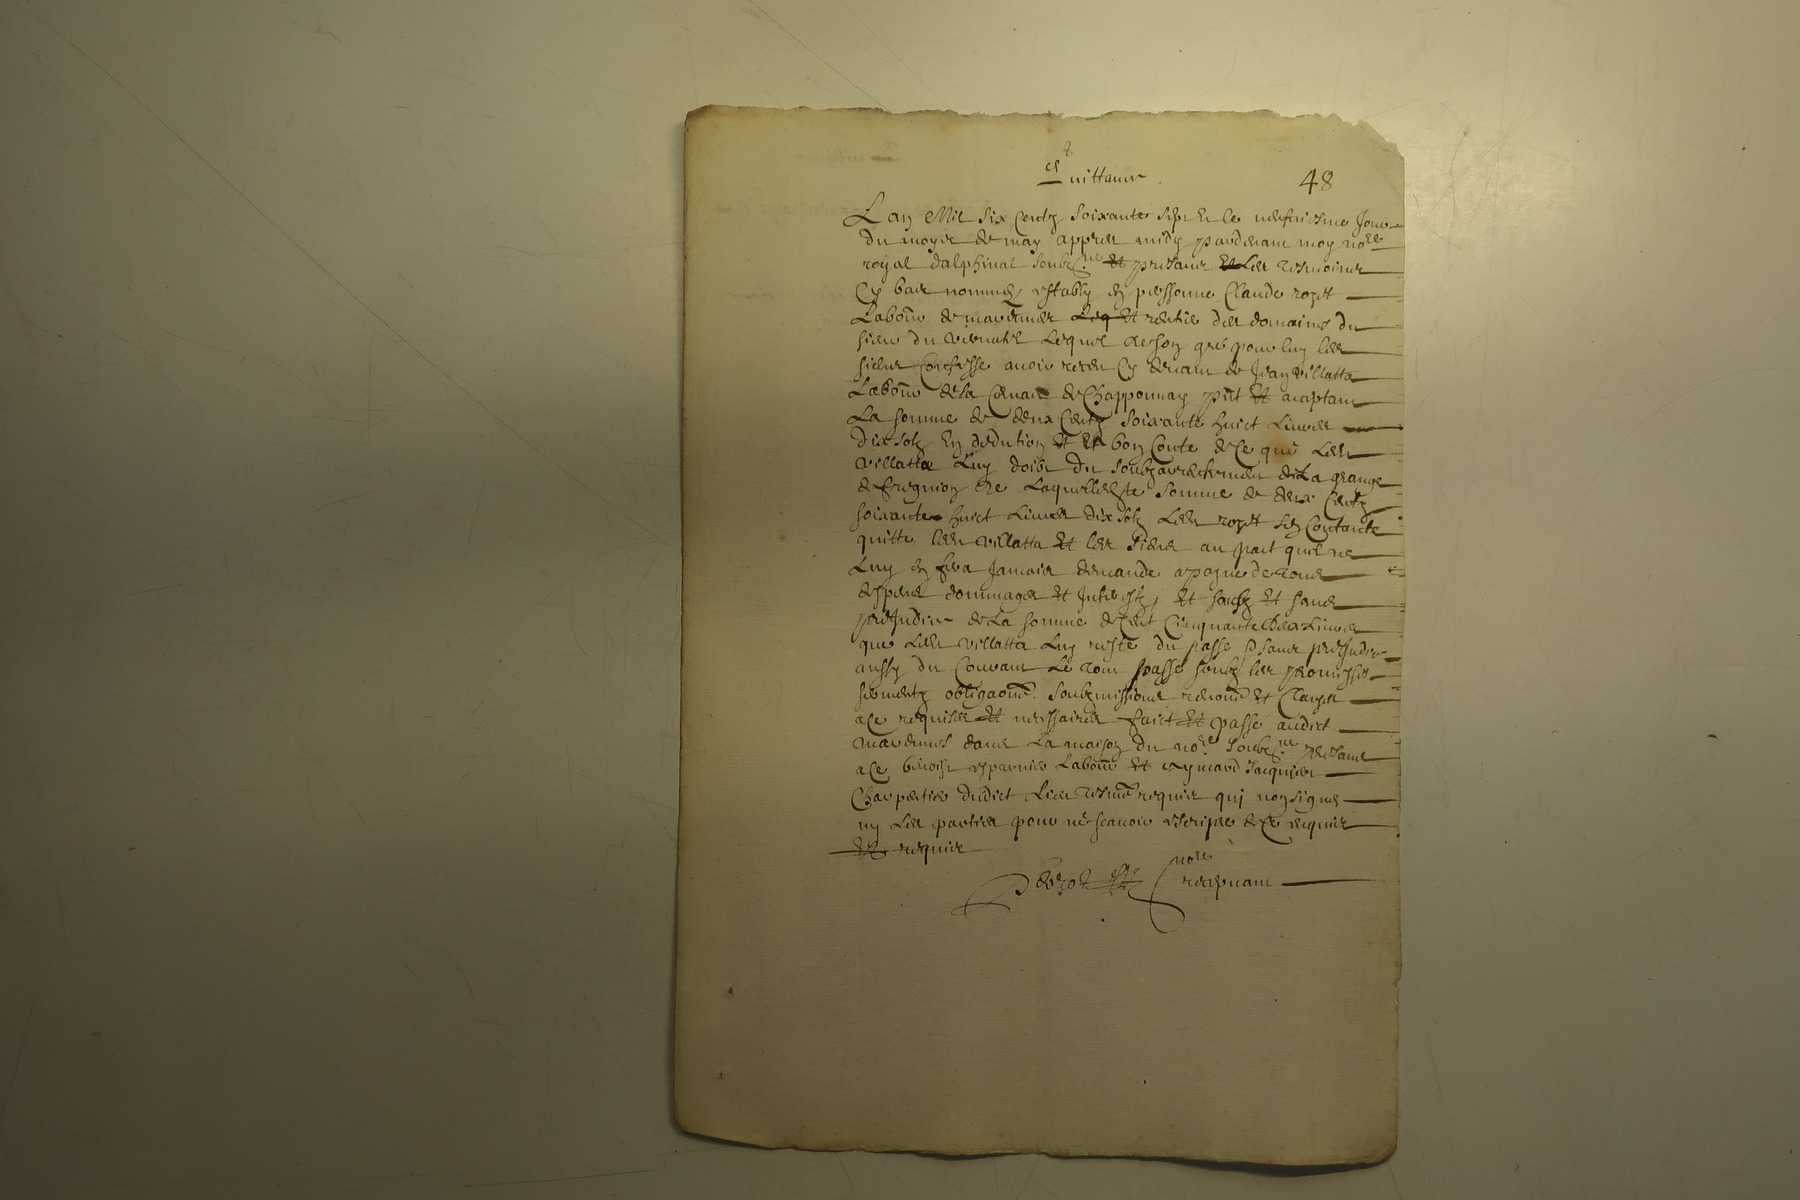 Quittance
48
Lan Mil six Centz soixante sept et le neufviesme Jour
du moys de may appres midy pardevant moy no.re
royal dalphinal soubz.ne et presant et les tesmoins
Cy bas nommes estably en personne Claude
Labour de marennes et rentier des domaines du
sieur du Lequel de son gré pour luy les
siens Confesse avoir receu Cy devant de Jean Villatta
Labour de la de Chapponnay pnt et acceptant
La somme de deux Centz soixante huict Livres
dix solz en dedution et bon Conte de Ce que Led
Villatta Luy doibt du de La grange
de laquelle somme de deux Centz
soixante huict Livres dix solz Led Contante
quitte led Villatta et les siens au pact quil ne
Luy en sera Jamais demandé a payne de tous
despens dommages et Interestz, et saufz et sans
prejudice de La somme de Cent Cinquante Livres
que Led Villatta Luy reste du passé sans prejudice
aussy du Courant Le tout passé soubz les promesses
sermentz obligaon soubzmissions renon et Clauzes
a Ce requises et necessaires faict et passé audict
marennes dans La maison du no.re soubz.ne presans
a Ce benoist Labour et Aymard Jacquier
Charpentier dudict Lieu tesm requis qui non signe
ny Les parties pour ne scavoir de Ce requis
et requis
no.re
recepvant